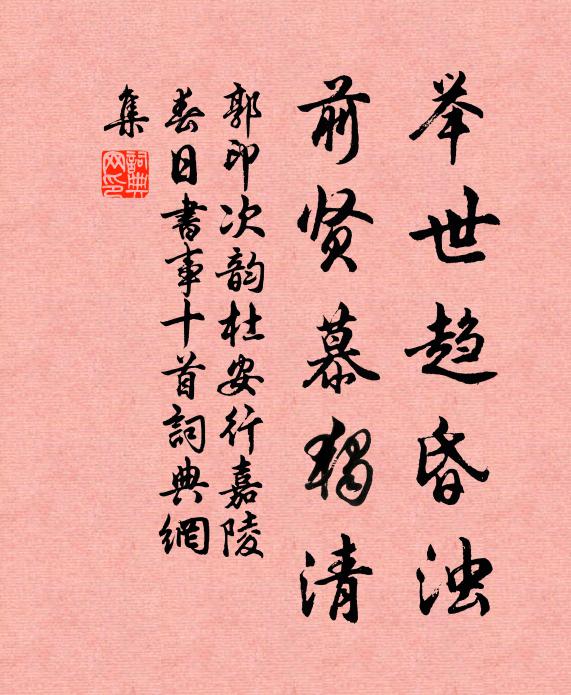 举世趋昏浊
前贤慕独清
郭印次韵杜安行嘉陵
春日书事十首詞典網
集
詞典
网印